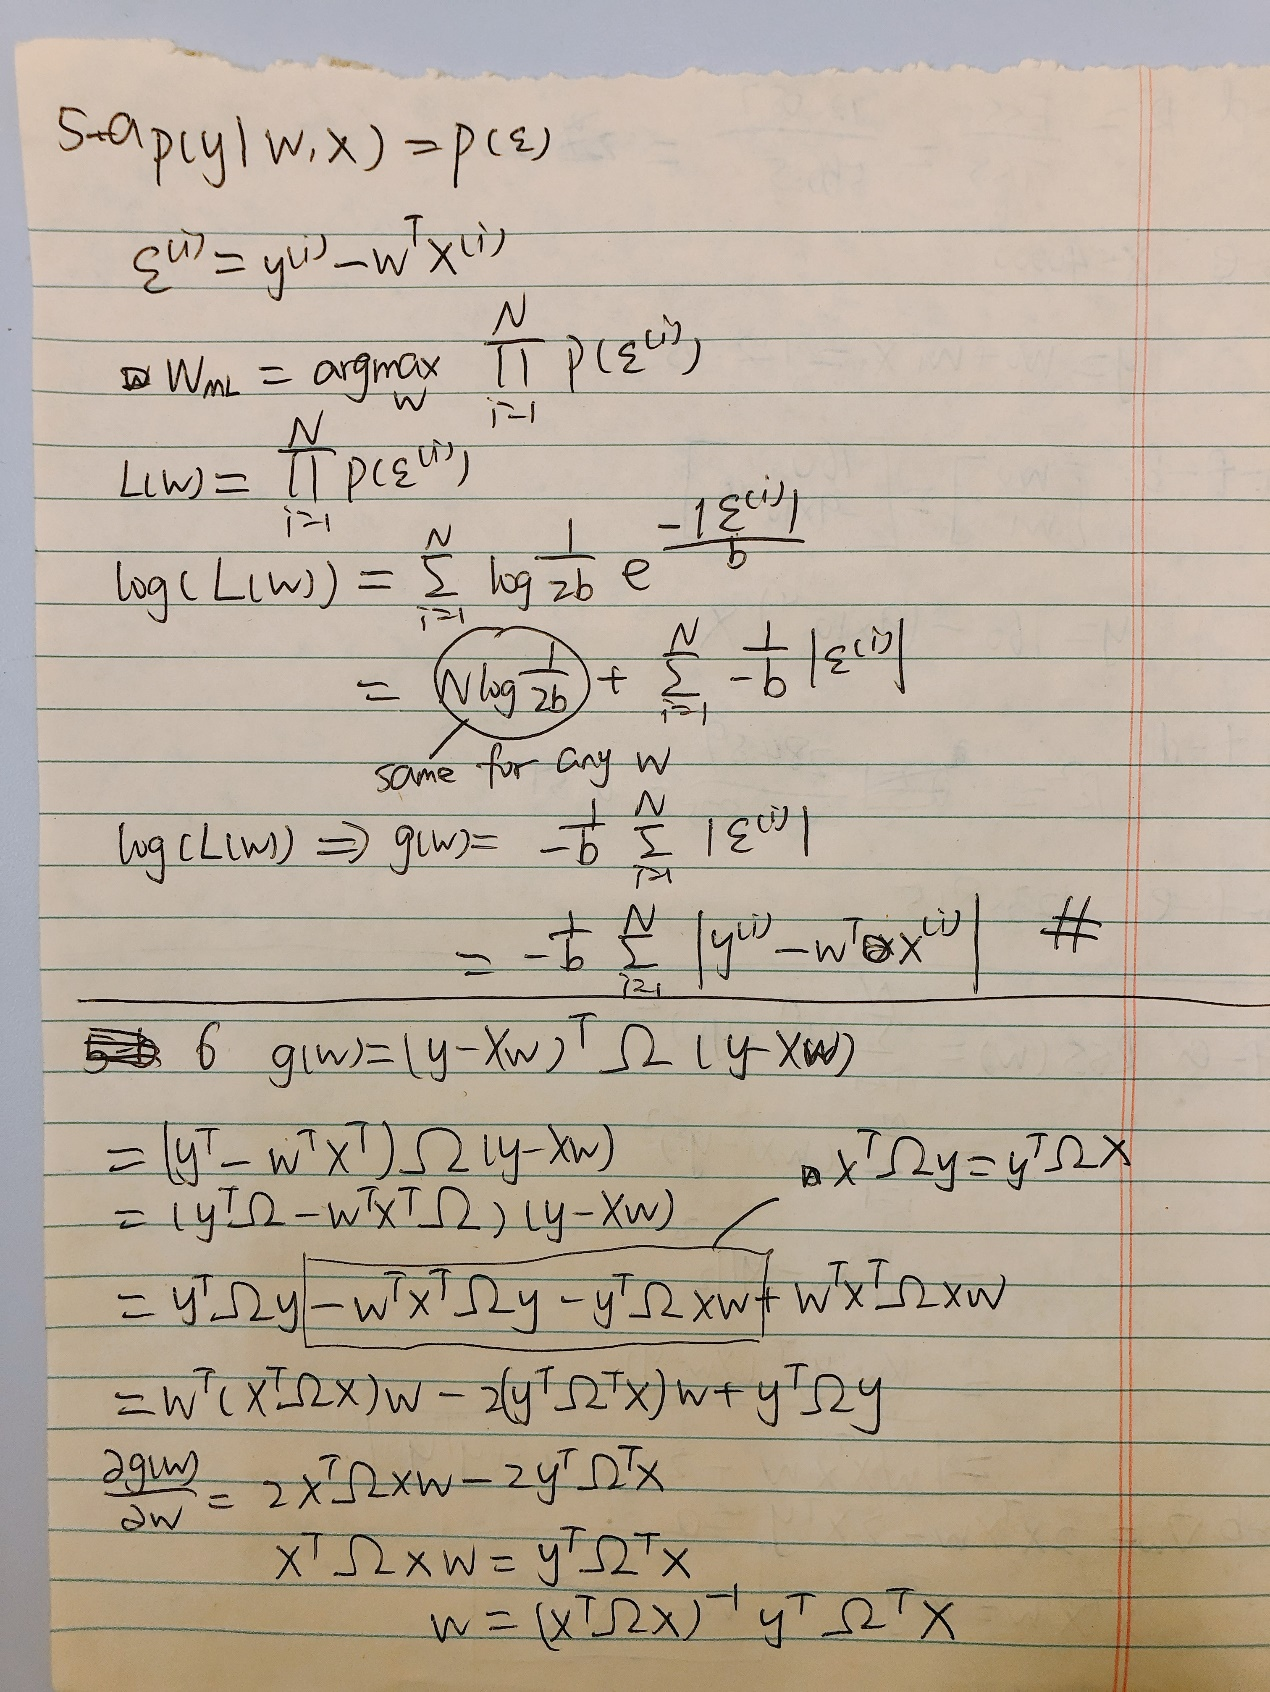 5-a p(y|w,x) = p(ε)
ε⁽ⁱ⁾ = y⁽ⁱ⁾ - wᵀx⁽ⁱ⁾
W_ML = argmax_w ∏_{i=1}^{N} p(ε⁽ⁱ⁾)
L(w) = ∏_{i=1}^{N} p(ε⁽ⁱ⁾)
log(L(w)) = Σ_{i=1}^{N} log 1/2b e^{-|ε⁽ⁱ⁾|/b}
= N log 1/2b + Σ_{i=1}^{N} -1/b |ε⁽ⁱ⁾|
same for any w
log(L(w)) ⇒ g(w) = -1/b Σ_{i=1}^{N} |ε⁽ⁱ⁾|
= -1/b Σ_{i=1}^{N} |y⁽ⁱ⁾ - wᵀx⁽ⁱ⁾| #
6 g(w) = (y-Xw)ᵀ Ω (y-Xw)
= (yᵀ - wᵀXᵀ) Ω (y-Xw)
xᵀΩy = yᵀΩx
= (yᵀΩ - wᵀXᵀΩ) (y-Xw)
= yᵀΩy - wᵀxᵀΩy - yᵀΩxw + wᵀxᵀΩxw
= wᵀ(xᵀΩx)w - 2(yᵀΩᵀx)w + yᵀΩy
∂g(w)/∂w = 2xᵀΩxw - 2yᵀΩᵀx
xᵀΩxw = yᵀΩᵀx
w = (xᵀΩx)⁻¹ yᵀΩᵀx